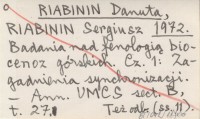 RIABININ Danuta,
RIABININ Sergiusz 1972.
Badania nad fenologią bio-
cenoz górskich. Cz. 1: Za-
gadnienia synchronizacji.
— Ann. UMCS sect. B,
t. 27. Też odb. (ss. 11).